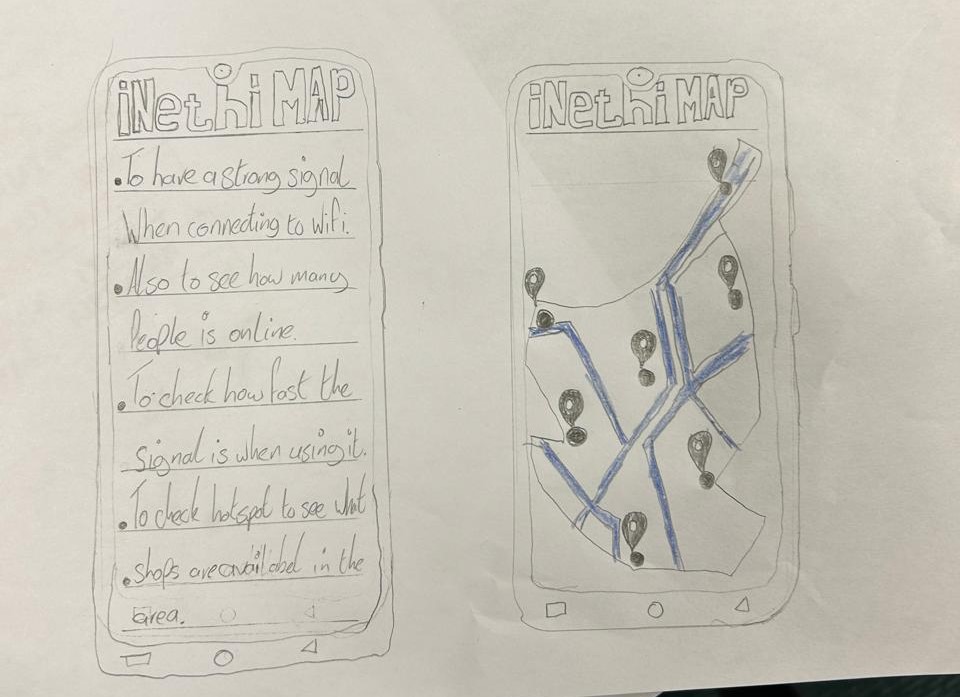 iNethi MAP
• To have a strong signal
When connecting to Wifi.
• Also to see how many
People is online.
• To check how fast the
signal is when using it.
• To check hotspot to see what
• shops are availabel in the
area.
iNethi MAP